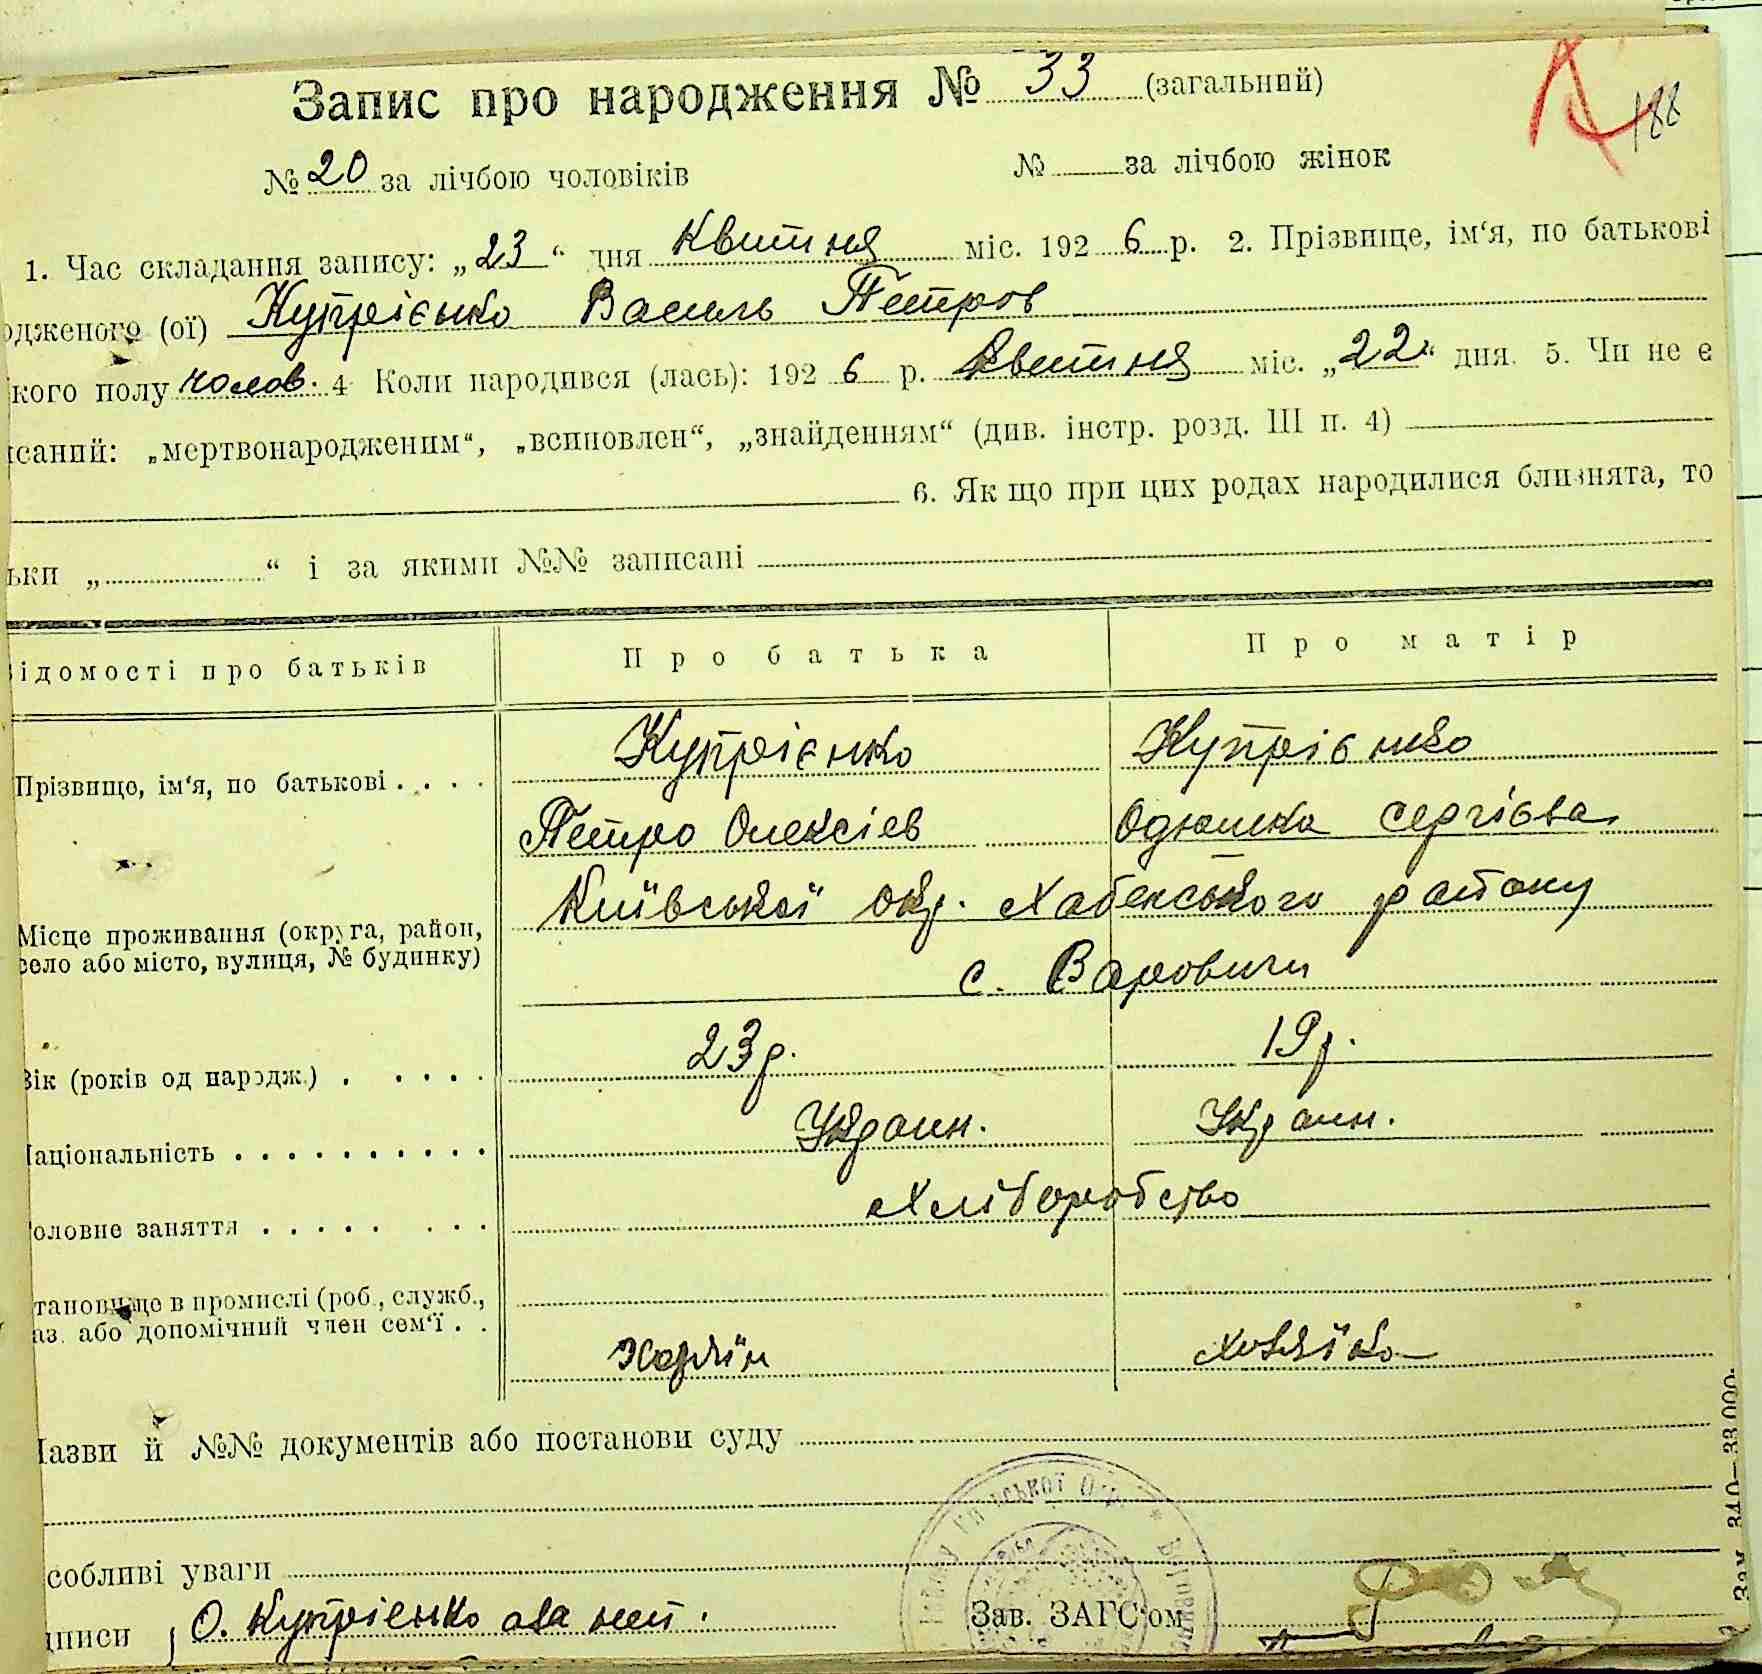 Запис про народження № 33 (загальний)
188
№ 20 за лічбою чоловіків № за лічбою жінок
1. Час складання запису: „23“ дня Квитня міс. 1926 р. 2. Прізвище, ім‘я, по батькові
одженого (ої) Купрієнко Василь Петров
кого полу чолов. 4 Коли народився (лась): 1926 р. Квитня міс. „22“ дня. 5. Чи не є
исаний: „мертвонародженим“, „всиновлен“, „знайденням“ (див. інстр. розд. III п. 4)
6. Як що при цих родах народилися близнята, то
ьки „ “ і за якими №№ записані
ідомості про батьків Про батька Про матір
Прізвище, ім‘я, по батькові . . . . Купрієнко Купрієнко
Петро Олексіев Одюшка Сергієва
Місце проживання (округа, район, село або місто, вулиця, № будинку) Київської окр. Хабенського району
с. Варовичи
Вік (років од народж.) . . . . . 23 р. 19 р.
Національність . . . . . . . . . . Украин. Украин.
оловне заняття . . . . . . . . Хліборобство
тановище в промислі (роб., служб.,
аз. або допомічний член сем‘ї . . Хазяїн хозяїка
Назви й №№ документів або постанови суду
собливі уваги
дписи О. Купрієнко
Зав. ЗАГС‘ом
Зам. 340—33.000.